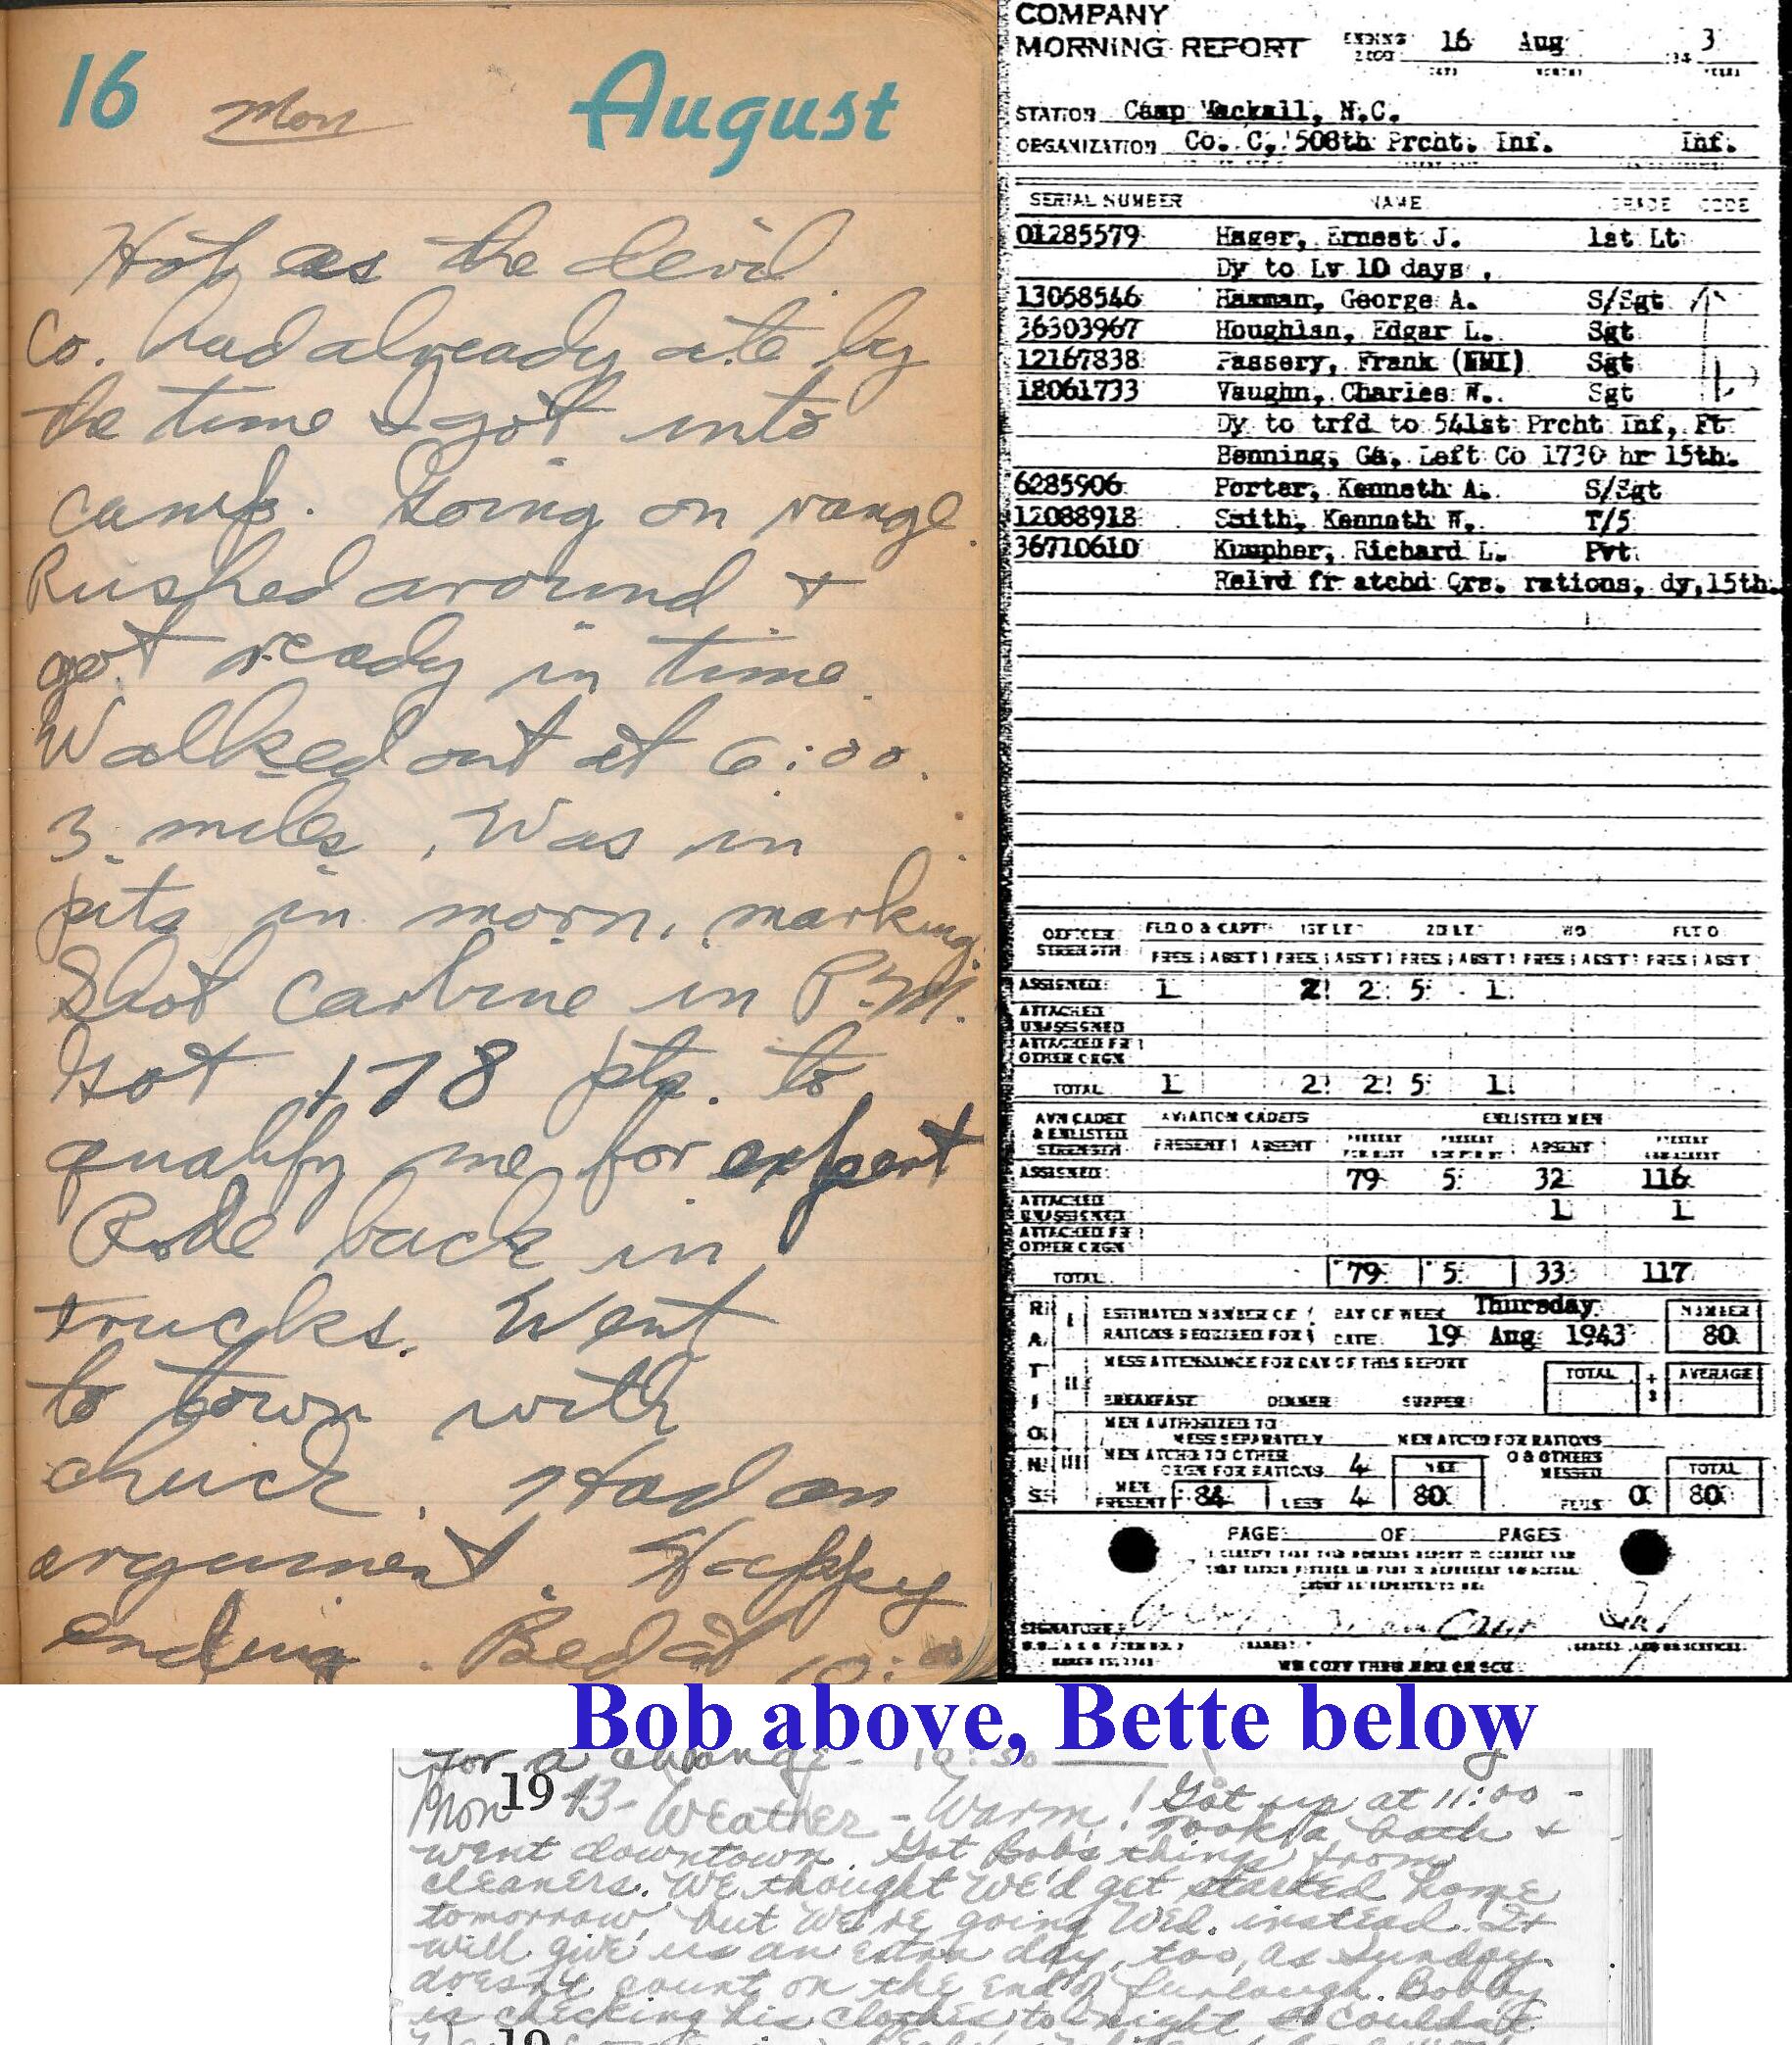 16 Mon August
Hot as the devil.
Co. had already ate by
the time I got into
camp. Going on range.
Rushed around +
got ready in time.
Walked out at 6:00.
3 miles. Was in
pits in morn, marking.
Shot carbine in P.M.
Got 178 pts. to
qualify me for expert
Rode back in
trucks. Went
to town with
chuck. Had an
argument. Happy
ending. Bed at 10:00
COMPANY
MORNING REPORT ENDING 2400 16 Aug 194 3
DATE MONTH YEAR
STATION Camp Mackall, N.C.
ORGANIZATION Co. C, 508th Prcht. Inf. Inf.
SERIAL NUMBER NAME GRADE CODE
01285579 Hager, Ernest J. 1st Lt
Dy to Lv 10 days
13058546 Haxman, George A. S/Sgt
36303967 Houghlan, Edgar L. Sgt
12167838 Passery, Frank (NMI) Sgt
18061733 Vaughn, Charles W. Sgt
Dy to trfd to 541st Prcht Inf, Ft
Benning, GA, Left Co 1730 hr 15th.
6285906 Porter, Kenneth A. S/Sgt
12088918 Smith, Kenneth W. T/5
36710610 Kumpher, Richard L. Pvt
Relvd fr atchd Qrs. rations, dy, 15th.
OFFICER STRENGTH FLD O & CAPT 1ST LT 2D LT WO FLT O
PRES ABST PRES ABST PRES ABST PRES ABST PRES ABST
ASSIGNED 1 2 2 5 1
ATTACHED UNASSIGNED
ATTACHED FR OTHER ORGN
TOTAL 1 2 2 5 1
AVN CADET & ENLISTED STRENGTH AVIATION CADETS ENLISTED MEN
PRESENT ABSENT PRESENT FOR DUTY PRESENT NOT FOR DY ABSENT PRESENT AND ABSENT
ASSIGNED 79 5 32 116
ATTACHED UNASSIGNED 1 1
ATTACHED FR OTHER ORGN
TOTAL 79 5 33 117
RATIONS
I ESTIMATED NUMBER OF RATIONS REQUIRED FOR DAY OF WEEK Thursday DATE 19 Aug 1943 NUMBER 80
II MESS ATTENDANCE FOR DAY OF THIS REPORT TOTAL ÷ 3 AVERAGE
BREAKFAST DINNER SUPPER
III MEN AUTHORIZED TO MESS SEPARATELY MEN ATCHD FOR RATIONS
MEN ATCHD TO OTHER ORGN FOR RATIONS 4 NET O & OTHERS MESSED TOTAL
MEN PRESENT 84 LESS 4 80 PLUS 0 80
PAGE OF PAGES
I CERTIFY THAT THIS MORNING REPORT IS CORRECT AND
SIGNATURE
Bob above, Bette below
for a change - 10:30
Mon 1943 - Weather - Warm! Got up at 11:00 -
Took a bath +
went downtown. Got Bob's things from
cleaners. We thought we'd get started home
tomorrow, but we're going Wed. instead. It
will give us an extra day, too, as Sunday
doesn't count on the end of furlough. Bobby
is checking his clothes tonight so couldn't
19